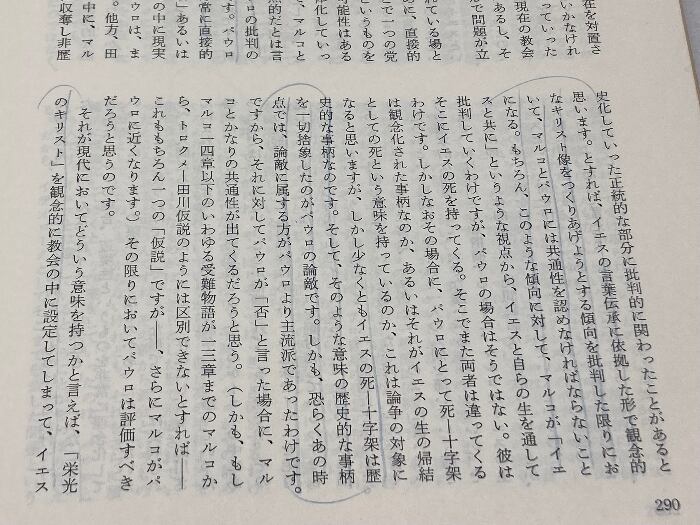 在を対置さ
いかなけれ
っていった
現在の教会
あるし、そ
で問題が立
れている場と
めに、直接的
こで一つの党
というものを
可能性はある
体化していっ
て、マルコと
点的だとは言
ロの批判の
す。パウロ
常に直接的
」あるいは
の中に現実
ウロは、ま
。他方、田
中に、マル
収奪し非歴
史化していった正統的な部分に批判的に関わったことがあると
思います。とすれば、イエスの言葉伝承に依拠した形で観念的
なキリスト像をつくりあげようとする傾向を批判した限りにお
いて、マルコとパウロには共通性を認めなければならないこと
になる。もちろん、このような傾向に対して、マルコが「イエ
スと共に」というような視点から、イエスと自らの生を通して
批判していくわけですが、パウロの場合はそうではない。彼は
そこにイエスの死を持ってくる。そこでまた両者は違ってくる
わけです。しかしなおその場合に、パウロにとって死―十字架
は観念化された事柄なのか、あるいはそれがイエスの生の帰結
としての死という意味を持っているのか、これは論争の対象に
なると思いますが、しかし少なくともイエスの死―十字架は歴
史的な事柄なのです。そして、そのような意味の歴史的な事柄
を一切捨象したのがパウロの論敵です。しかも、恐らくあの時
点では、論敵に属する方がパウロより主流派であったわけです。
ですから、それに対してパウロが「否」と言った場合に、マル
コとかなりの共通性が出てくるだろうと思う。（しかも、もし
マルコ一四章以下のいわゆる受難物語が一三章までのマルコか
ら、トロクメ―田川仮説のようには区別できないとすれば――
これももちろん一つの「仮説」ですが――、さらにマルコがパ
ウロに近くなります。）その限りにおいてパウロは評価すべき
だろうと思うのです。
それが現代においてどういう意味を持つかと言えば、「栄光
のキリスト」を観念的に教会の中に設定してしまって、イエス
290